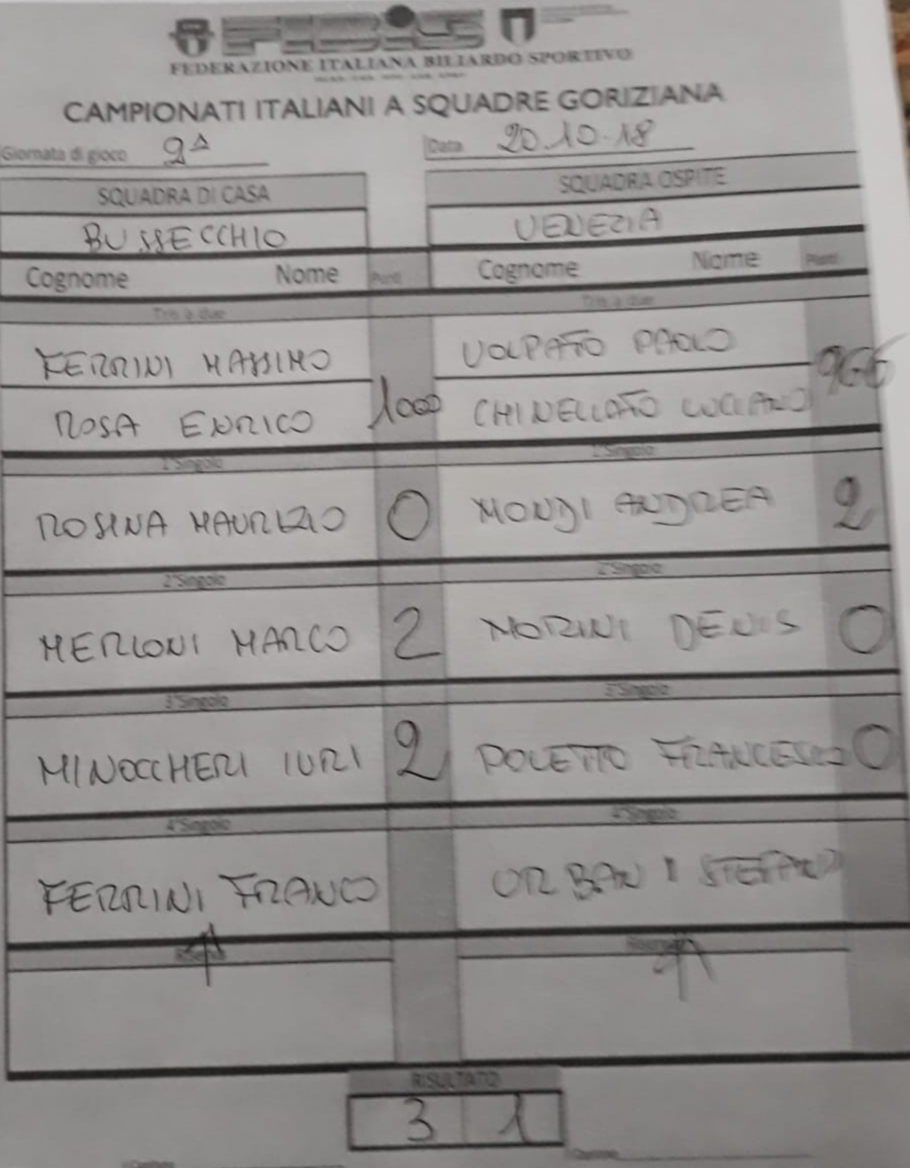 FIBiS
FEDERAZIONE ITALIANA BILIARDO SPORTIVO
CAMPIONATI ITALIANI A SQUADRE GORIZIANA
Giornata di gioco 2^ Data 20.10.18
SQUADRA DI CASA SQUADRA OSPITE
BUSSECCHIO VENEZIA
Cognome Nome Punti Cognome Nome Punti
Tris a due Tris a due
FERRINI MASSIMO VOLPATO PAOLO
ROSA ENRICO 1000 CHINELLATO LUCIANO 966
1°Singolo 1°Singolo
ROSINA MAURIZIO 0 MONDI ANDREA 2
2°Singolo 2°Singolo
MERLONI MARCO 2 MORINI DENIS 0
3°Singolo 3°Singolo
MINOCCHERI IURI 2 POLETTO FRANCESCO 0
4°Singolo 4°Singolo
FERRINI FRANCO URBANI STEFANO
Riserva Riserva
RISULTATO
3 1